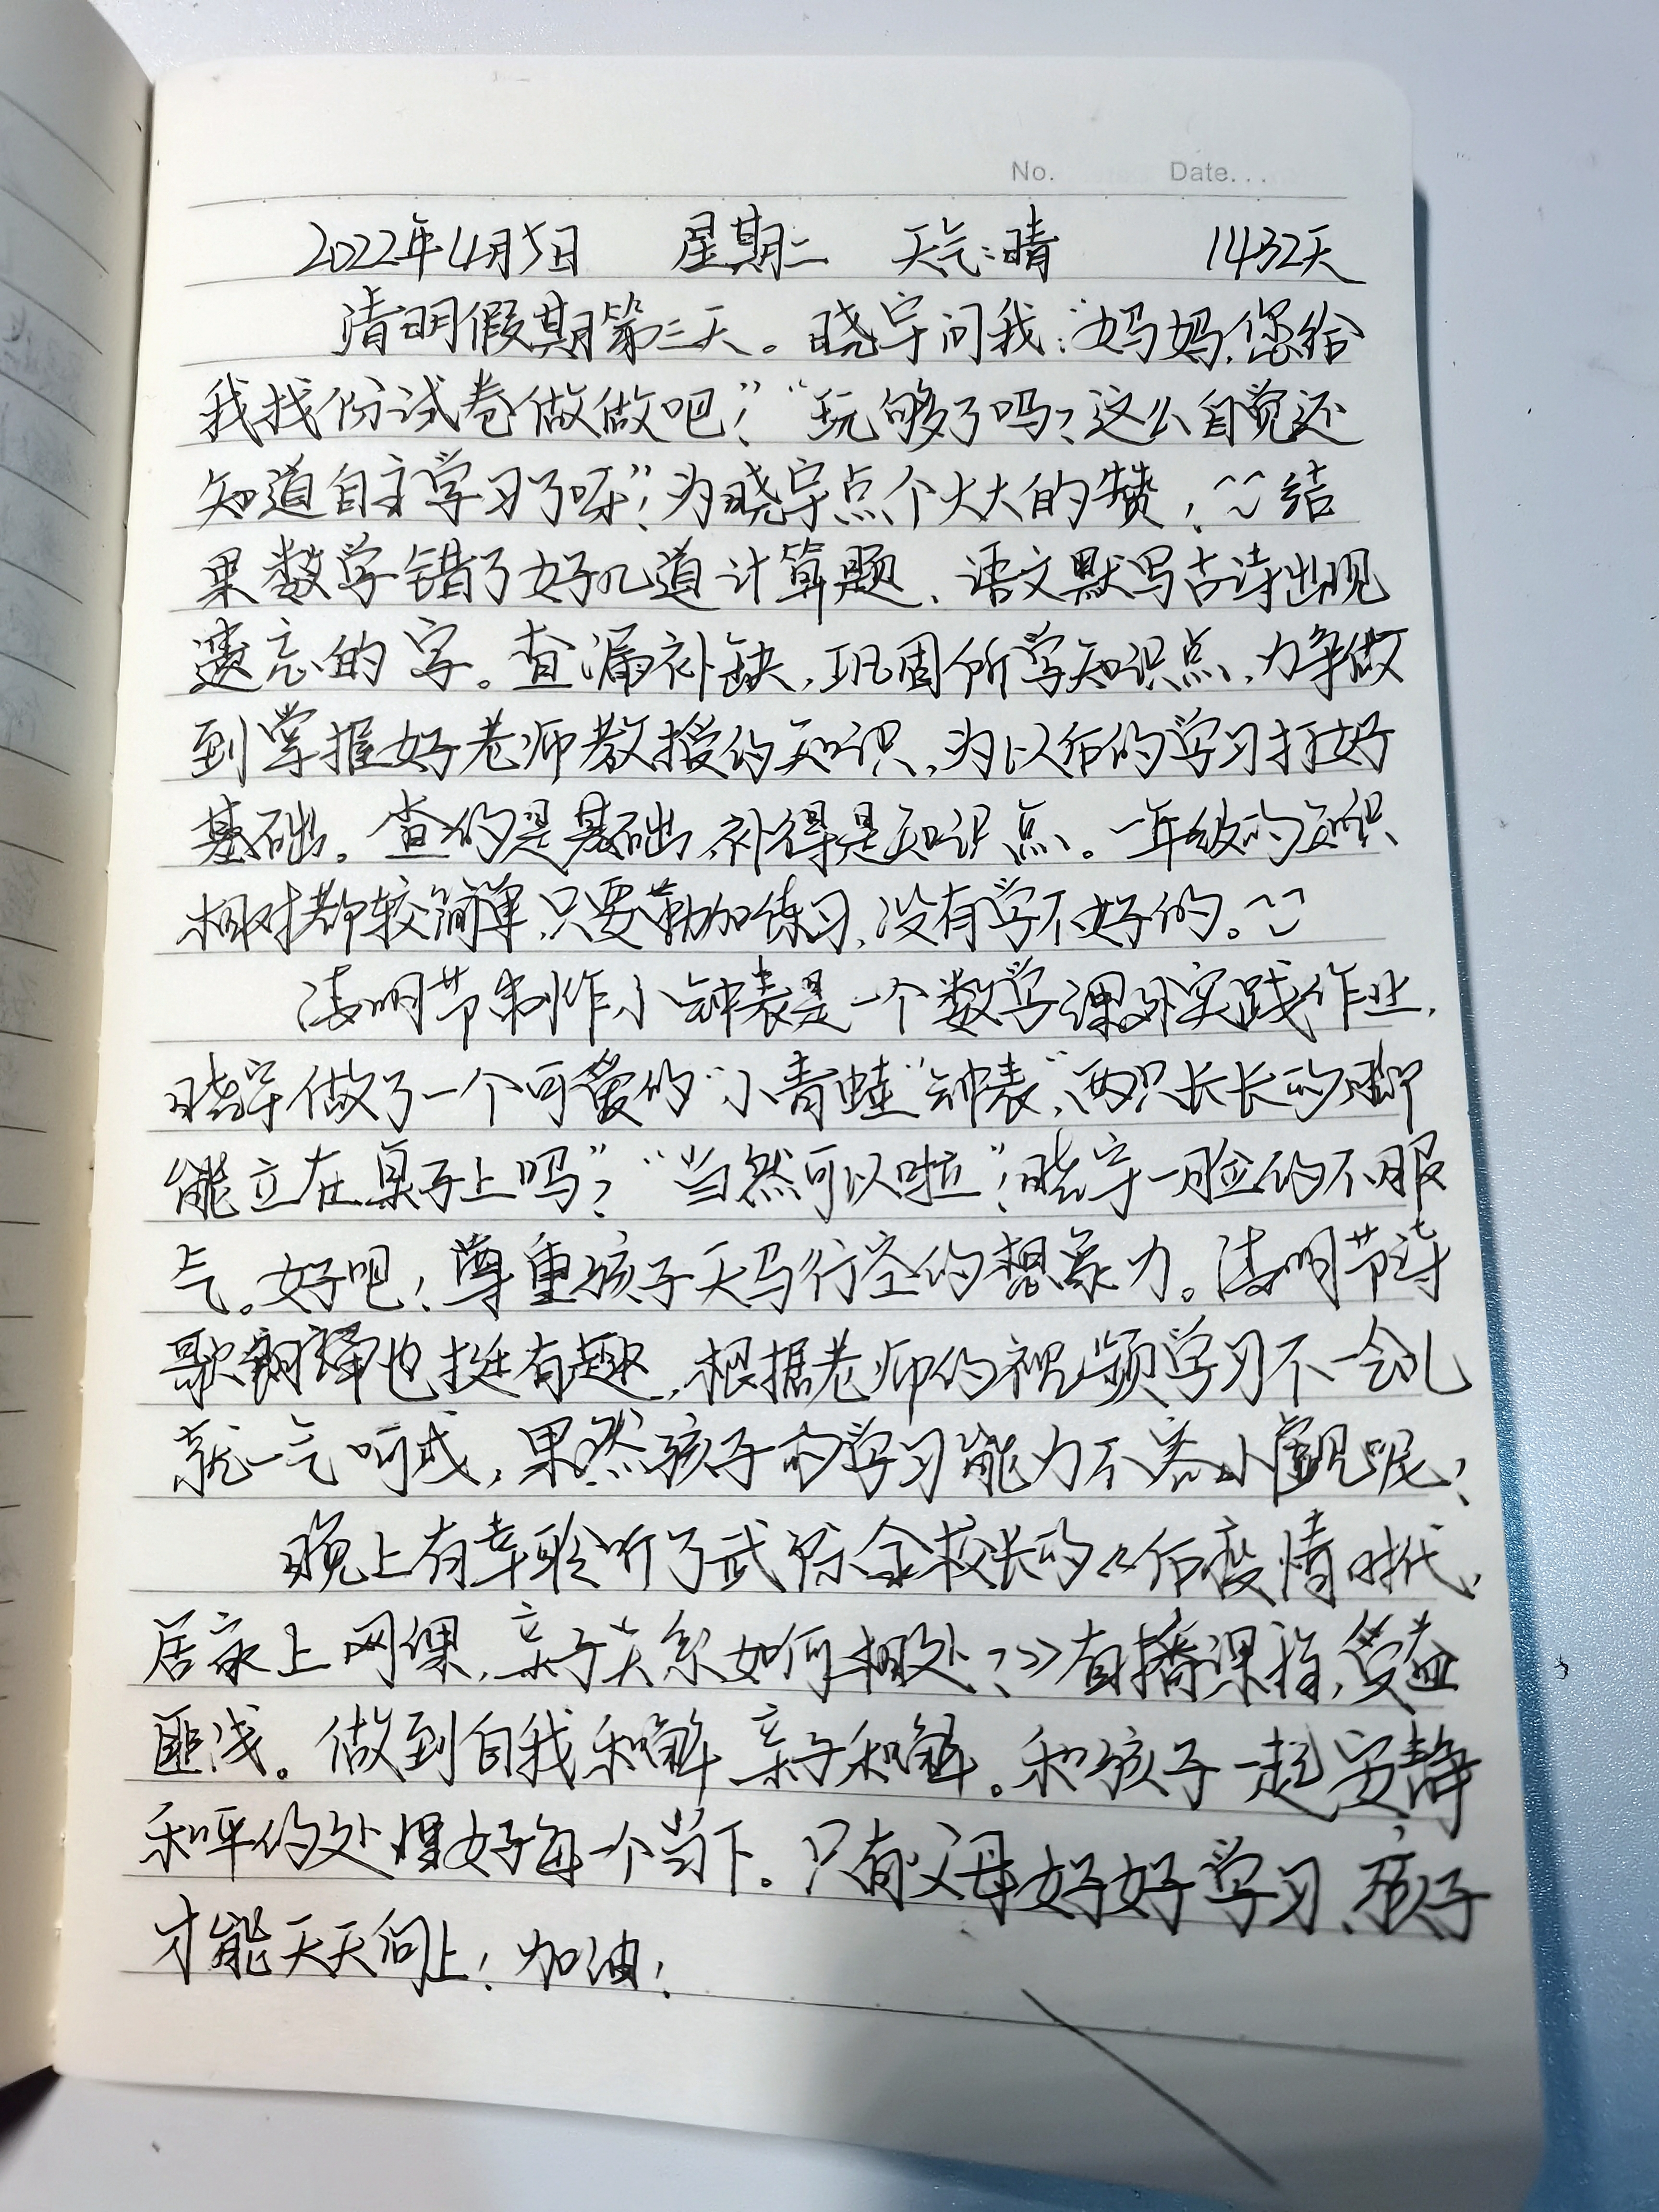 No.    Date...
2022年4月5日 星期二 天气:晴 1432天
清明假期第三天。晓宇问我:“妈妈,您给
我找份试卷做做吧!”“玩够了吗?这么自觉还
知道自主学习了呀”!为晓宇点个大大的赞!结
果数学错了好几道计算题、语文默写古诗出现
遗忘的字。查漏补缺,巩固所学知识点,力争做
到掌握好老师教授的知识,为以后的学习打好
基础。查的是基础,补得是知识点。一年级的知识
相对都较简单,只要勤加练习,没有学不好的。
清明节制作小钟表是一个数学课外实践作业,
晓宇做了一个可爱的“小青蛙”钟表”,两只长长的脚
能立在桌子上吗”?“当然可以啦”!晓宇一脸的不服
气。好吧!尊重孩子天马行空的想象力。清明节诗
歌朗诵也挺有趣,根据老师的视频学习不一会儿
就一气呵成,果然孩子的学习能力不容小觑呢!
晚上有幸聆听了武际金校长的《后疫情时代,
居家上网课,亲子关系如何相处?》直播课程,受益
匪浅。做到自我和解,亲子和解。和孩子一起安静
和平的处理好每一个当下。只有父母好好学习,孩子
才能天天向上!加油!